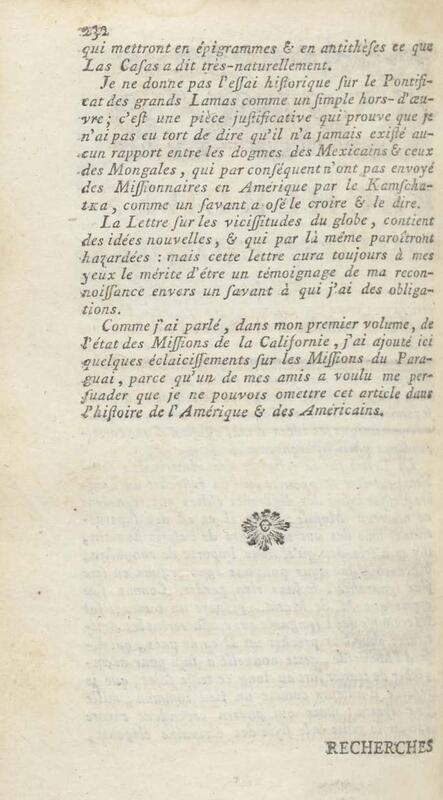 232
qui mettront en épigrammes & en antithèſes ce que
Las Caſas a dit très-naturellement.
Je ne donne pas l'eſſai hiſtorique ſur le Pontifi-
cat des grands Lamas comme un ſimple hors-d'œu-
vre; c'eſt une pièce juſtificative qui prouve que je
n'ai pas eu tort de dire qu'il n'a jamais exiſté au-
cun rapport entre les dogmes des Mexicains & ceux
des Mongales, qui par conſéquent n'ont pas envoyé
des Miſſionnaires en Amérique par le Kamſcha-
tka, comme un ſavant a oſé le croire & le dire.
La Lettre ſur les viciſſitudes du globe, contient
des idées nouvelles, & qui par là même paroîtront
hazardées : mais cette lettre aura toujours à mes
yeux le mérite d'être un témoignage de ma recon-
noiſſance envers un ſavant à qui j'ai des obliga-
tions.
Comme j'ai parlé, dans mon premier volume, de
l'état des Miſſions de la Californie, j'ai ajouté ici
quelques éclairciſſements ſur les Miſſions du Para-
guai, parce qu'un de mes amis a voulu me per-
ſuader que je ne pouvois omettre cet article dans
l'hiſtoire de l'Amérique & des Américains.
RECHERCHES